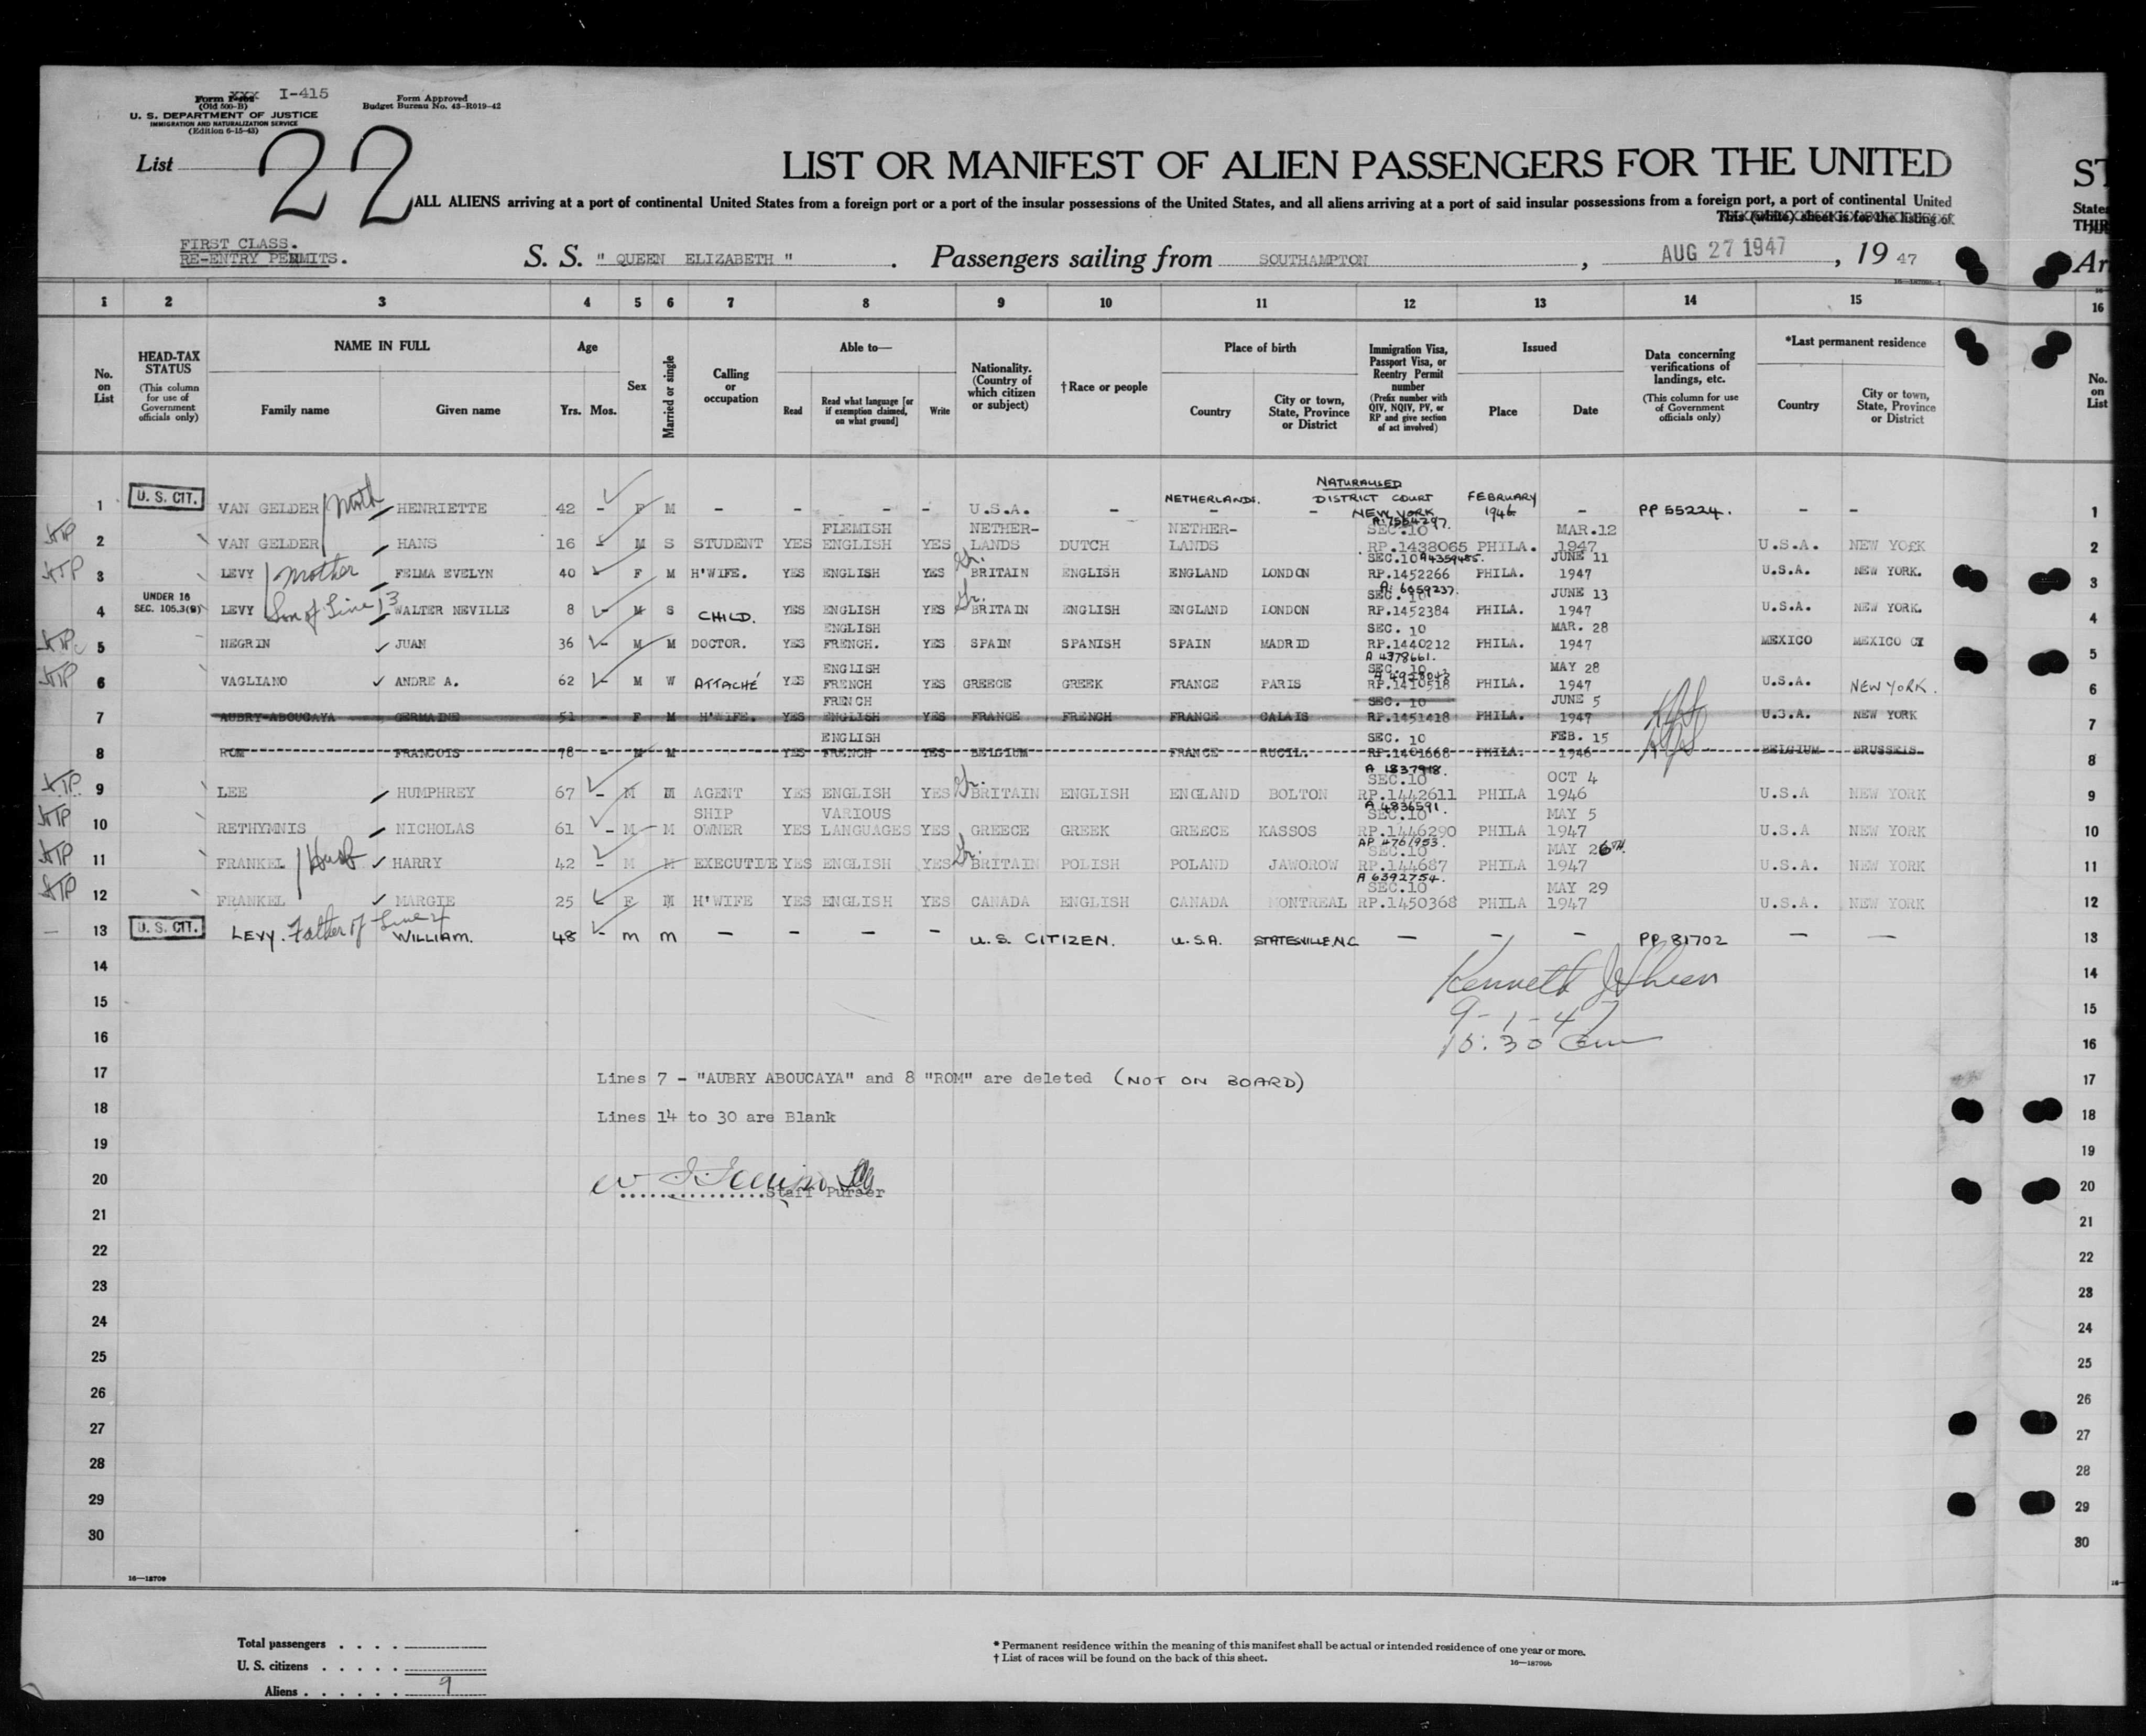 Form XXX I-415
(Old 500-B)
U. S. DEPARTMENT OF JUSTICE
IMMIGRATION AND NATURALIZATION SERVICE
(Edition 6-15-43)
Form Approved
Budget Bureau No. 43-R019-42
List 22
LIST OR MANIFEST OF ALIEN PASSENGERS FOR THE UNITED
ST
ALL ALIENS arriving at a port of continental United States from a foreign port or a port of the insular possessions of the United States, and all aliens arriving at a port of said insular possessions from a foreign port, a port of continental United
States
This (white) sheet is for the listing of
FIRST CLASS.
RE-ENTRY PERMITS.
S. S. " QUEEN ELIZABETH " . Passengers sailing from SOUTHAMPTON , AUG 27 1947 , 19 47
Ar
1 2 3 4 5 6 7 8 9 10 11 12 13 14 15 16
No. on List
HEAD-TAX STATUS (This column for use of Government officials only)
NAME IN FULL Family name Given name
Age Yrs. Mos.
Sex
Married or single
Calling or occupation
Able to— Read Read what language [or if exemption claimed, on what ground] Write
Nationality. (Country of which citizen or subject)
†Race or people
Place of birth Country City or town, State, Province or District
Immigration Visa, Passport Visa, or Reentry Permit number (Prefix number with QIV, NQIV, PV, or RP and give section of act involved)
Issued Place Date
Data concerning verifications of landings, etc. (This column for use of Government officials only)
*Last permanent residence Country City or town, State, Province or District
No. on List
1 U. S. CIT. VAN GELDER Moth HENRIETTE 42 - F M - - - - U.S.A. - NETHERLANDS. - - NATURALISED DISTRICT COURT NEW YORK FEBRUARY 1946 - PP 55224. - - 1
2 VAN GELDER HANS 16 - M S STUDENT YES FLEMISH ENGLISH YES NETHER-LANDS DUTCH NETHER-LANDS A. 7554297. SEC.10 RP.1438065 PHILA. MAR.12 1947 U.S.A. NEW YORK 2
3 LEVY Mother FELMA EVELYN 40 F M H'WIFE. YES ENGLISH YES Gr. BRITAIN ENGLISH ENGLAND LONDON SEC.10 A4359485. RP.1452266 PHILA. JUNE 11 1947 U.S.A. NEW YORK. 3
4 UNDER 16 SEC. 105.3(B) LEVY Son of Line 13 WALTER NEVILLE 8 - M S CHILD. YES ENGLISH YES Gr. BRITAIN ENGLISH ENGLAND LONDON A. 6059237. SEC. 10 RP.1452384 PHILA. JUNE 13 1947 U.S.A. NEW YORK. 4
5 NEGRIN JUAN 36 - M M DOCTOR. YES ENGLISH FRENCH. YES SPAIN SPANISH SPAIN MADRID SEC. 10 RP.1440212 PHILA. MAR. 28 1947 MEXICO MEXICO CY 5
6 VAGLIANO ANDRE A. 62 - M W ATTACHÉ YES ENGLISH FRENCH YES GREECE GREEK FRANCE PARIS A 4378661. SEC. 10 RP.1410518 PHILA. MAY 28 1947 U.S.A. NEW YORK. 6
7 AUBRY-ABOUCAYA GERMAINE 51 - F M H'WIFE. YES FRENCH ENGLISH YES FRANCE FRENCH FRANCE CALAIS SEC. 10 RP.1451418 PHILA. JUNE 5 1947 U.S.A. NEW YORK 7
8 ROM FRANCOIS 78 - M M YES ENGLISH FRENCH YES BELGIUM FRANCE RUCIL. SEC. 10 RP.1401668 PHILA. FEB. 15 1946 BELGIUM BRUSSELS 8
9 LEE HUMPHREY 67 - M M AGENT YES ENGLISH YES Gr. BRITAIN ENGLISH ENGLAND BOLTON A 1837918. SEC.10 RP.1442611 PHILA OCT 4 1946 U.S.A NEW YORK 9
10 RETHYMNIS NICHOLAS 61 - M M SHIP OWNER YES VARIOUS LANGUAGES YES GREECE GREEK GREECE KASSOS A 4836591. SEC.10 RP.1446290 PHILA MAY 5 1947 U.S.A NEW YORK 10
11 FRANKEL Husb HARRY 42 - M M EXECUTIVE YES ENGLISH YES Gr. BRITAIN POLISH POLAND JAWOROW AP 4761953. SEC.10 RP.144687 PHILA MAY 26TH. 1947 U.S.A. NEW YORK 11
12 FRANKEL MARGIE 25 F M H'WIFE YES ENGLISH YES CANADA ENGLISH CANADA MONTREAL A 6392754. SEC.10 RP.1450368 PHILA MAY 29 1947 U.S.A. NEW YORK 12
13 U. S. CIT. LEVY. Father of Line 4 WILLIAM. 48 - M M - - - - U.S. CITIZEN. U.S.A. STATESVILLE, N.C - - - PP 81702 - - 13
14 14
Kenneth J Sheen
15 9-1-47 15
16 16
17 Lines 7 - "AUBRY ABOUCAYA" and 8 "ROM" are deleted (NOT ON BOARD) 17
18 Lines 14 to 30 are Blank 18
19 19
20 Staff Purser 20
21 21
22 22
23 23
24 24
25 25
26 26
27 27
28 28
29 29
30 30
16—18709
Total passengers . . . .
U. S. citizens . . . . .
Aliens . . . . . . 9
* Permanent residence within the meaning of this manifest shall be actual or intended residence of one year or more.
† List of races will be found on the back of this sheet.
16—18709b